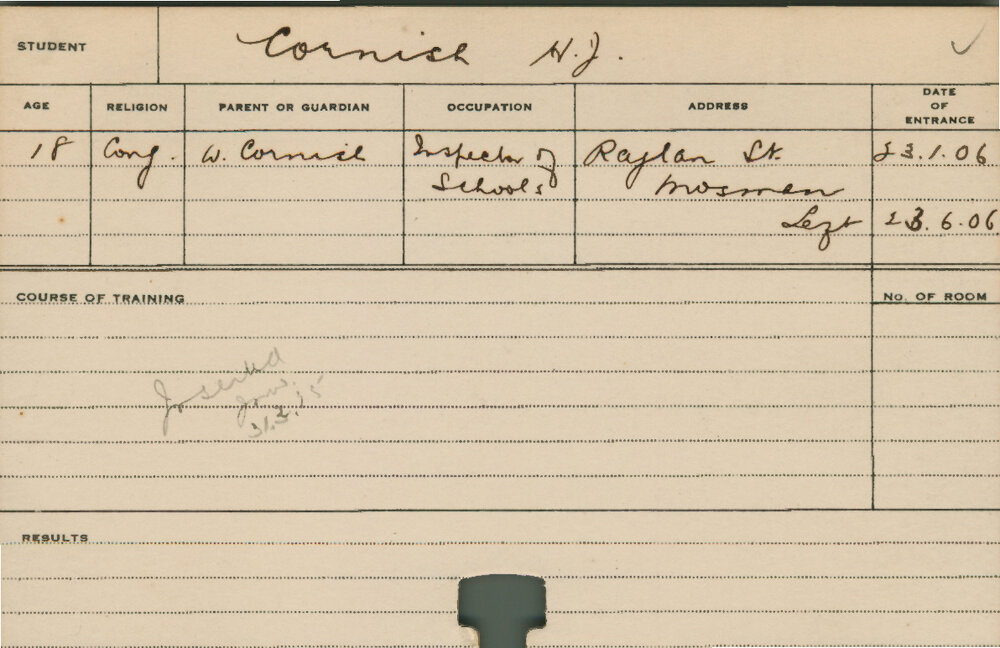 STUDENT Cornish H.J. ✓
AGE RELIGION PARENT OR GUARDIAN OCCUPATION ADDRESS DATE OF ENTRANCE
18 Cong. W. Cornish Inspector of Raglan St. 23.1.06
Schools Mosman
Left 23.6.06
COURSE OF TRAINING No. OF ROOM
31.3.15
RESULTS